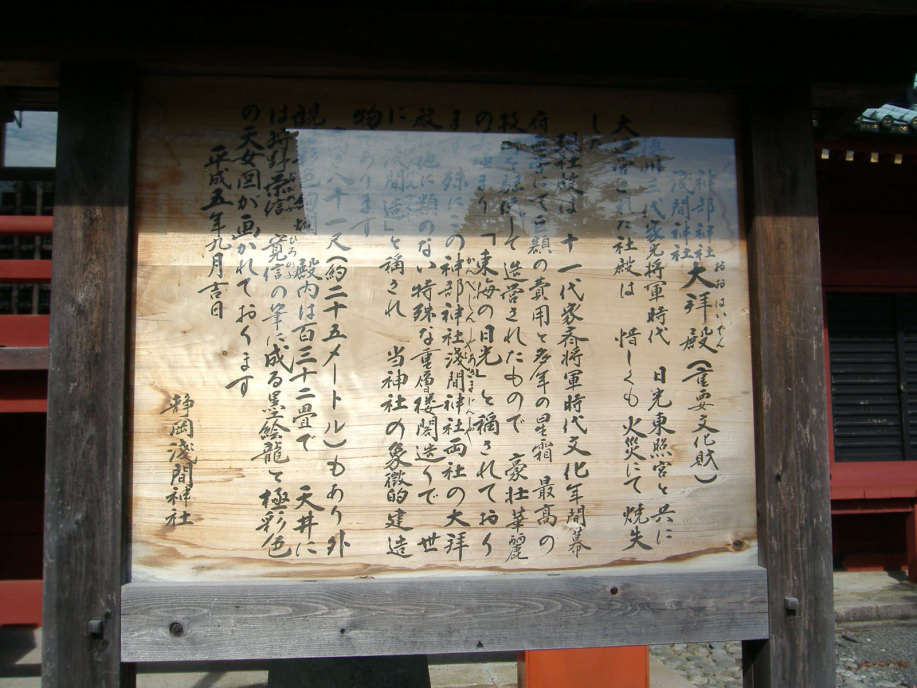 神部神社
浅間神社
大拝殿(重要文化財)
おおはいでん
徳川三代家光将軍時代 日光東照宮と共に
大造営された社殿は 惜しくも火災にて焼失
した
現社殿は 十一代家斉将軍時代文化年間幕
府直営にて巨額の費用と多年の星霜 最高の
技を して造営されたもので 豪壮華麗
の まり「東海の日光」と称されており
ます 殊にこの神部神社浅間神社両社の大拝
殿は他に類のない特殊な重層楼閣造りで 世
に「浅間造」と称され 当神社の象徴的建造
物であります
高さ八十一尺(約二十五メートル)もあり外
観 殿内は百三十二畳で 天井に
は狩野栄信 寛信の筆に成る墨絵龍と極彩色
の天女図が画かれております
平成五年九月吉日
静岡浅間神社